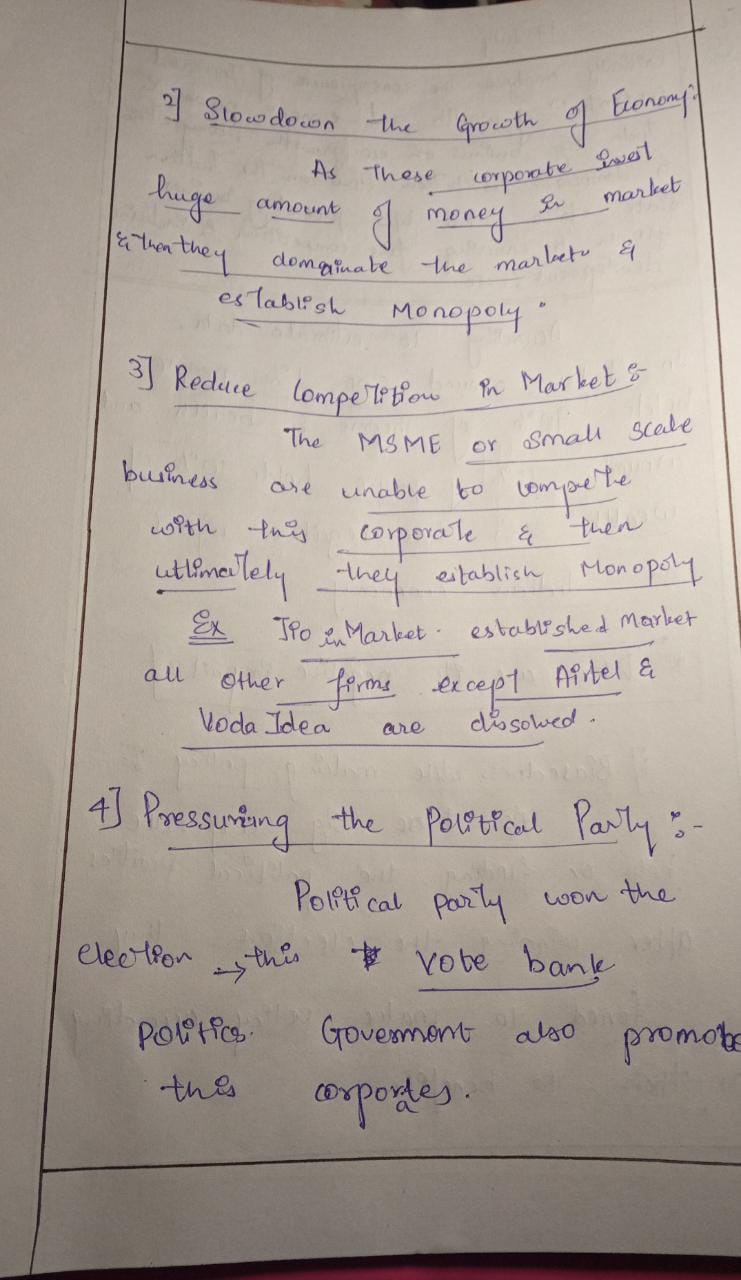 2] Slowdown the Growth of Economy:
As These corporate invest
huge amount of money in market
& then they domainate the markets &
establish Monopoly.
3] Reduce Competition in Market :-
The MSME or Small Scale
business are unable to compete
with this corporate & then
utlimately they establish Monopoly
Ex JIO in Market. established Market
all other firms except Airtel &
Voda Idea are dissolved.
4] Pressuring the Political Party :-
Political party won the
election → this vote bank
Politics. Goverment also promote
this corporates.